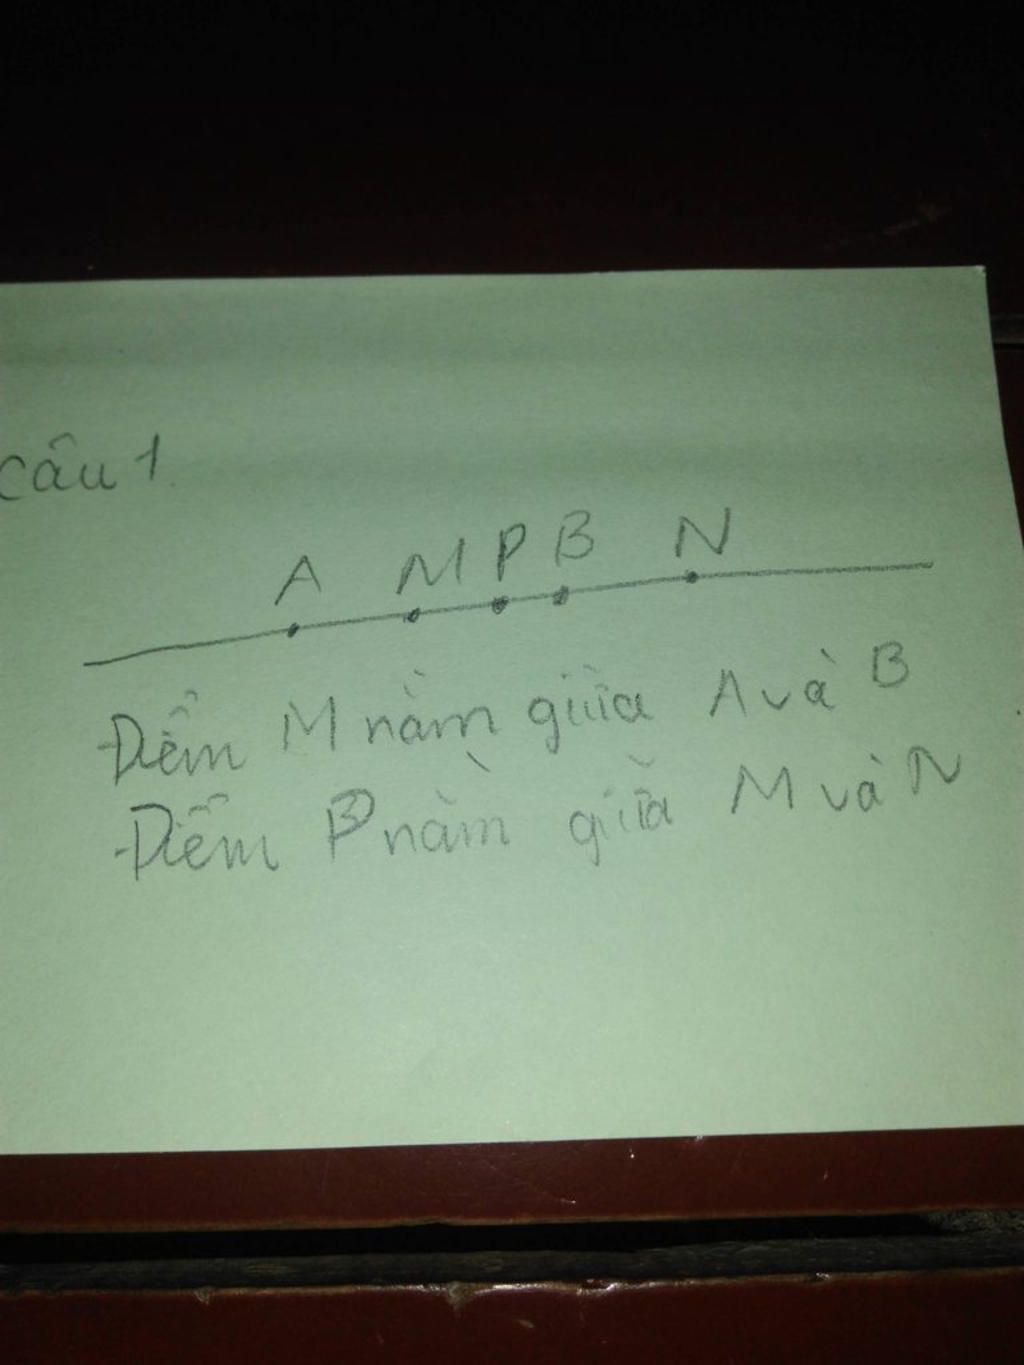 Câu 1.
A M P B N
Điểm M nằm giữa A và B
Điểm P nằm giữa M và N